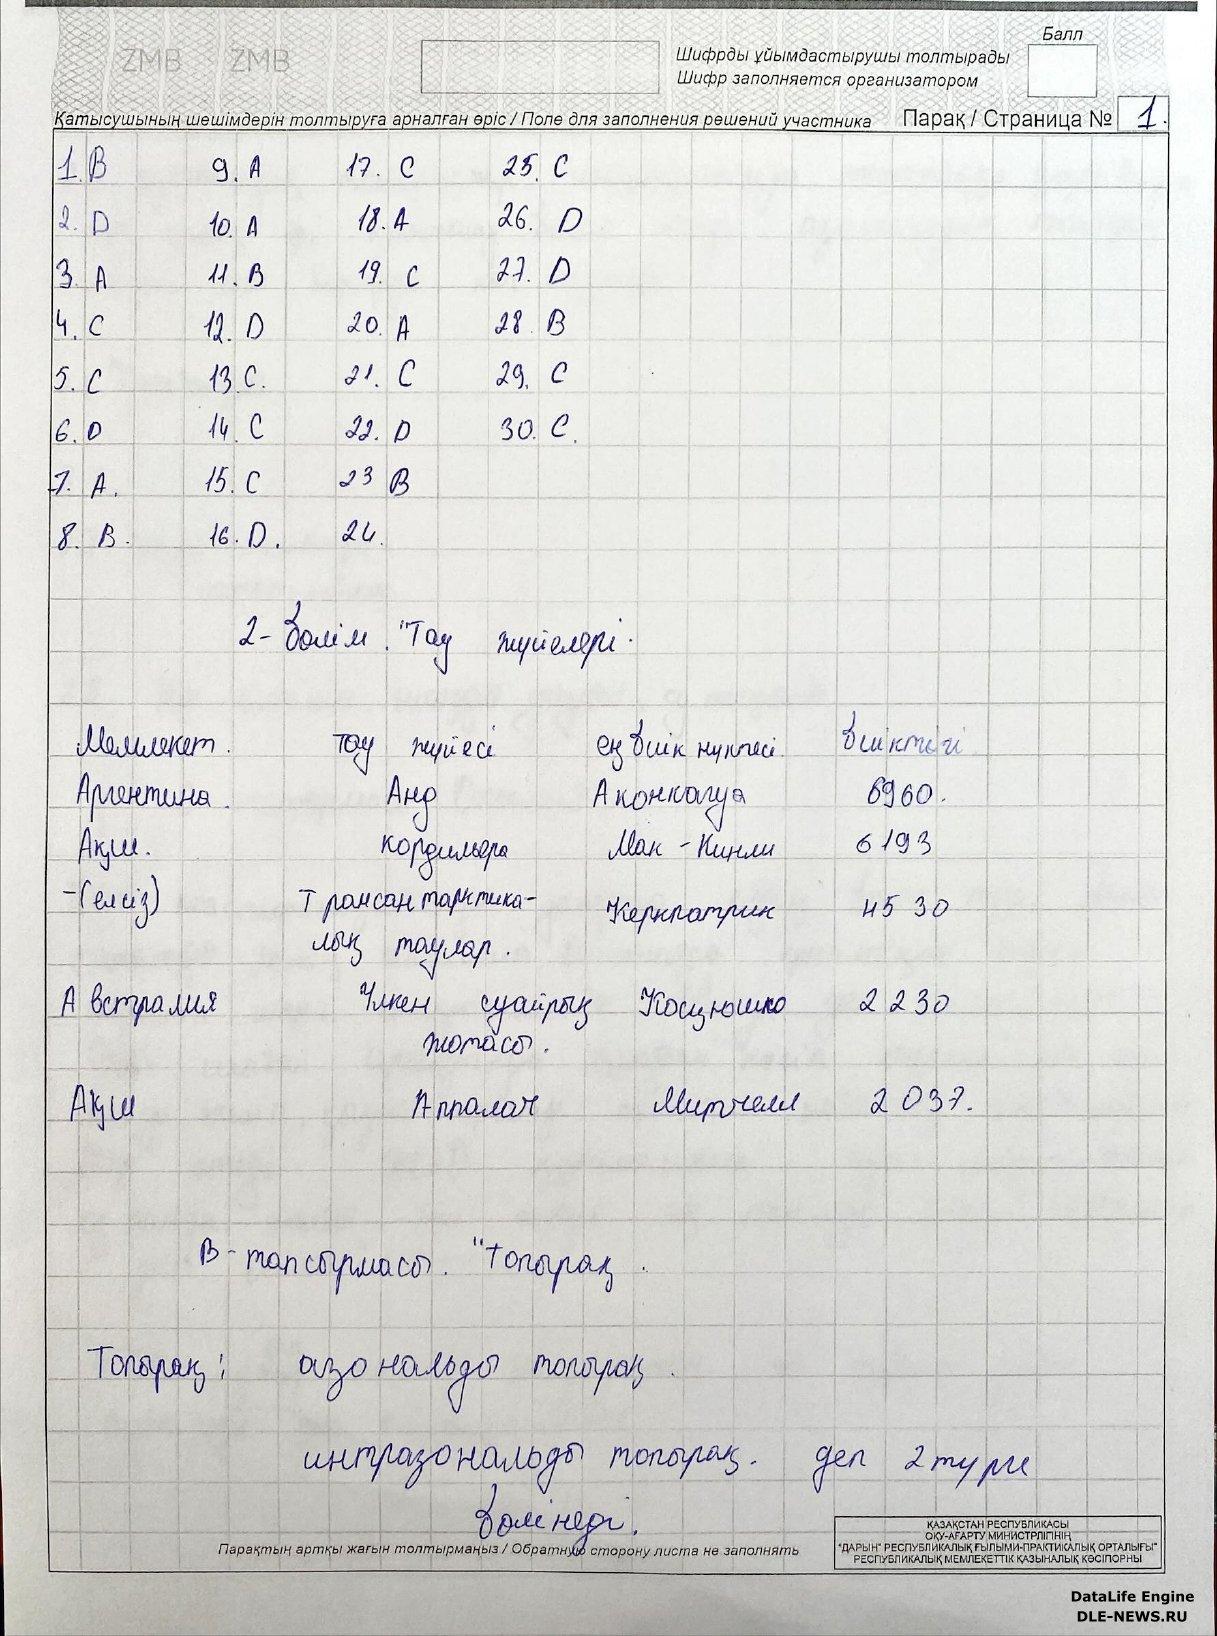 ZMB ZMB
Балл
Шифрды ұйымдастырушы толтырады
Шифр заполняется организатором
Қатысушының шешімдерін толтыруға арналған өріс / Поле для заполнения решений участника Парақ / Страница № 1.
1. B 9. A 17. C 25. C
2. D 10. A 18. A 26. D
3. A 11. B 19. C 27. D
4. C 12. D 20. A 28. B
5. C 13. C. 21. C 29. C
6. D 14. C 22. D 30. C.
7. A. 15. C 23 B
8. B. 16. D. 24.
2-бөлім. "Тау жүйелері.
Мемлекет. Тау жүйесі ең биік нүктесі биіктігі
Аргентина. Анд Аконкагуа 6960.
Ақш. кордильера Мак-Кинли 6193
-(елсіз) Трансантарктика-
лық таулар. Керкпатрик 4530
Австралия Үлкен суайрық Косцюшко 2230
жотасы.
Ақш Аппалач Митчелл 2037.
В-тапсырмасы. "Топырақ.
Топырақ: азональды топырақ.
интразональды топырақ. деп 2 түрге
бөлінеді.
Парақтың артқы жағын толтырмаңыз / Обратную сторону листа не заполнять
ҚАЗАҚСТАН РЕСПУБЛИКАСЫ
ОҚУ-АҒАРТУ МИНИСТРЛІГІНІҢ
"ДАРЫН" РЕСПУБЛИКАЛЫҚ ҒЫЛЫМИ-ПРАКТИКАЛЫҚ ОРТАЛЫҒЫ"
РЕСПУБЛИКАЛЫҚ МЕМЛЕКЕТТІК ҚАЗЫНАЛЫҚ КӘСІПОРНЫ
DataLife Engine
DLE-NEWS.RU